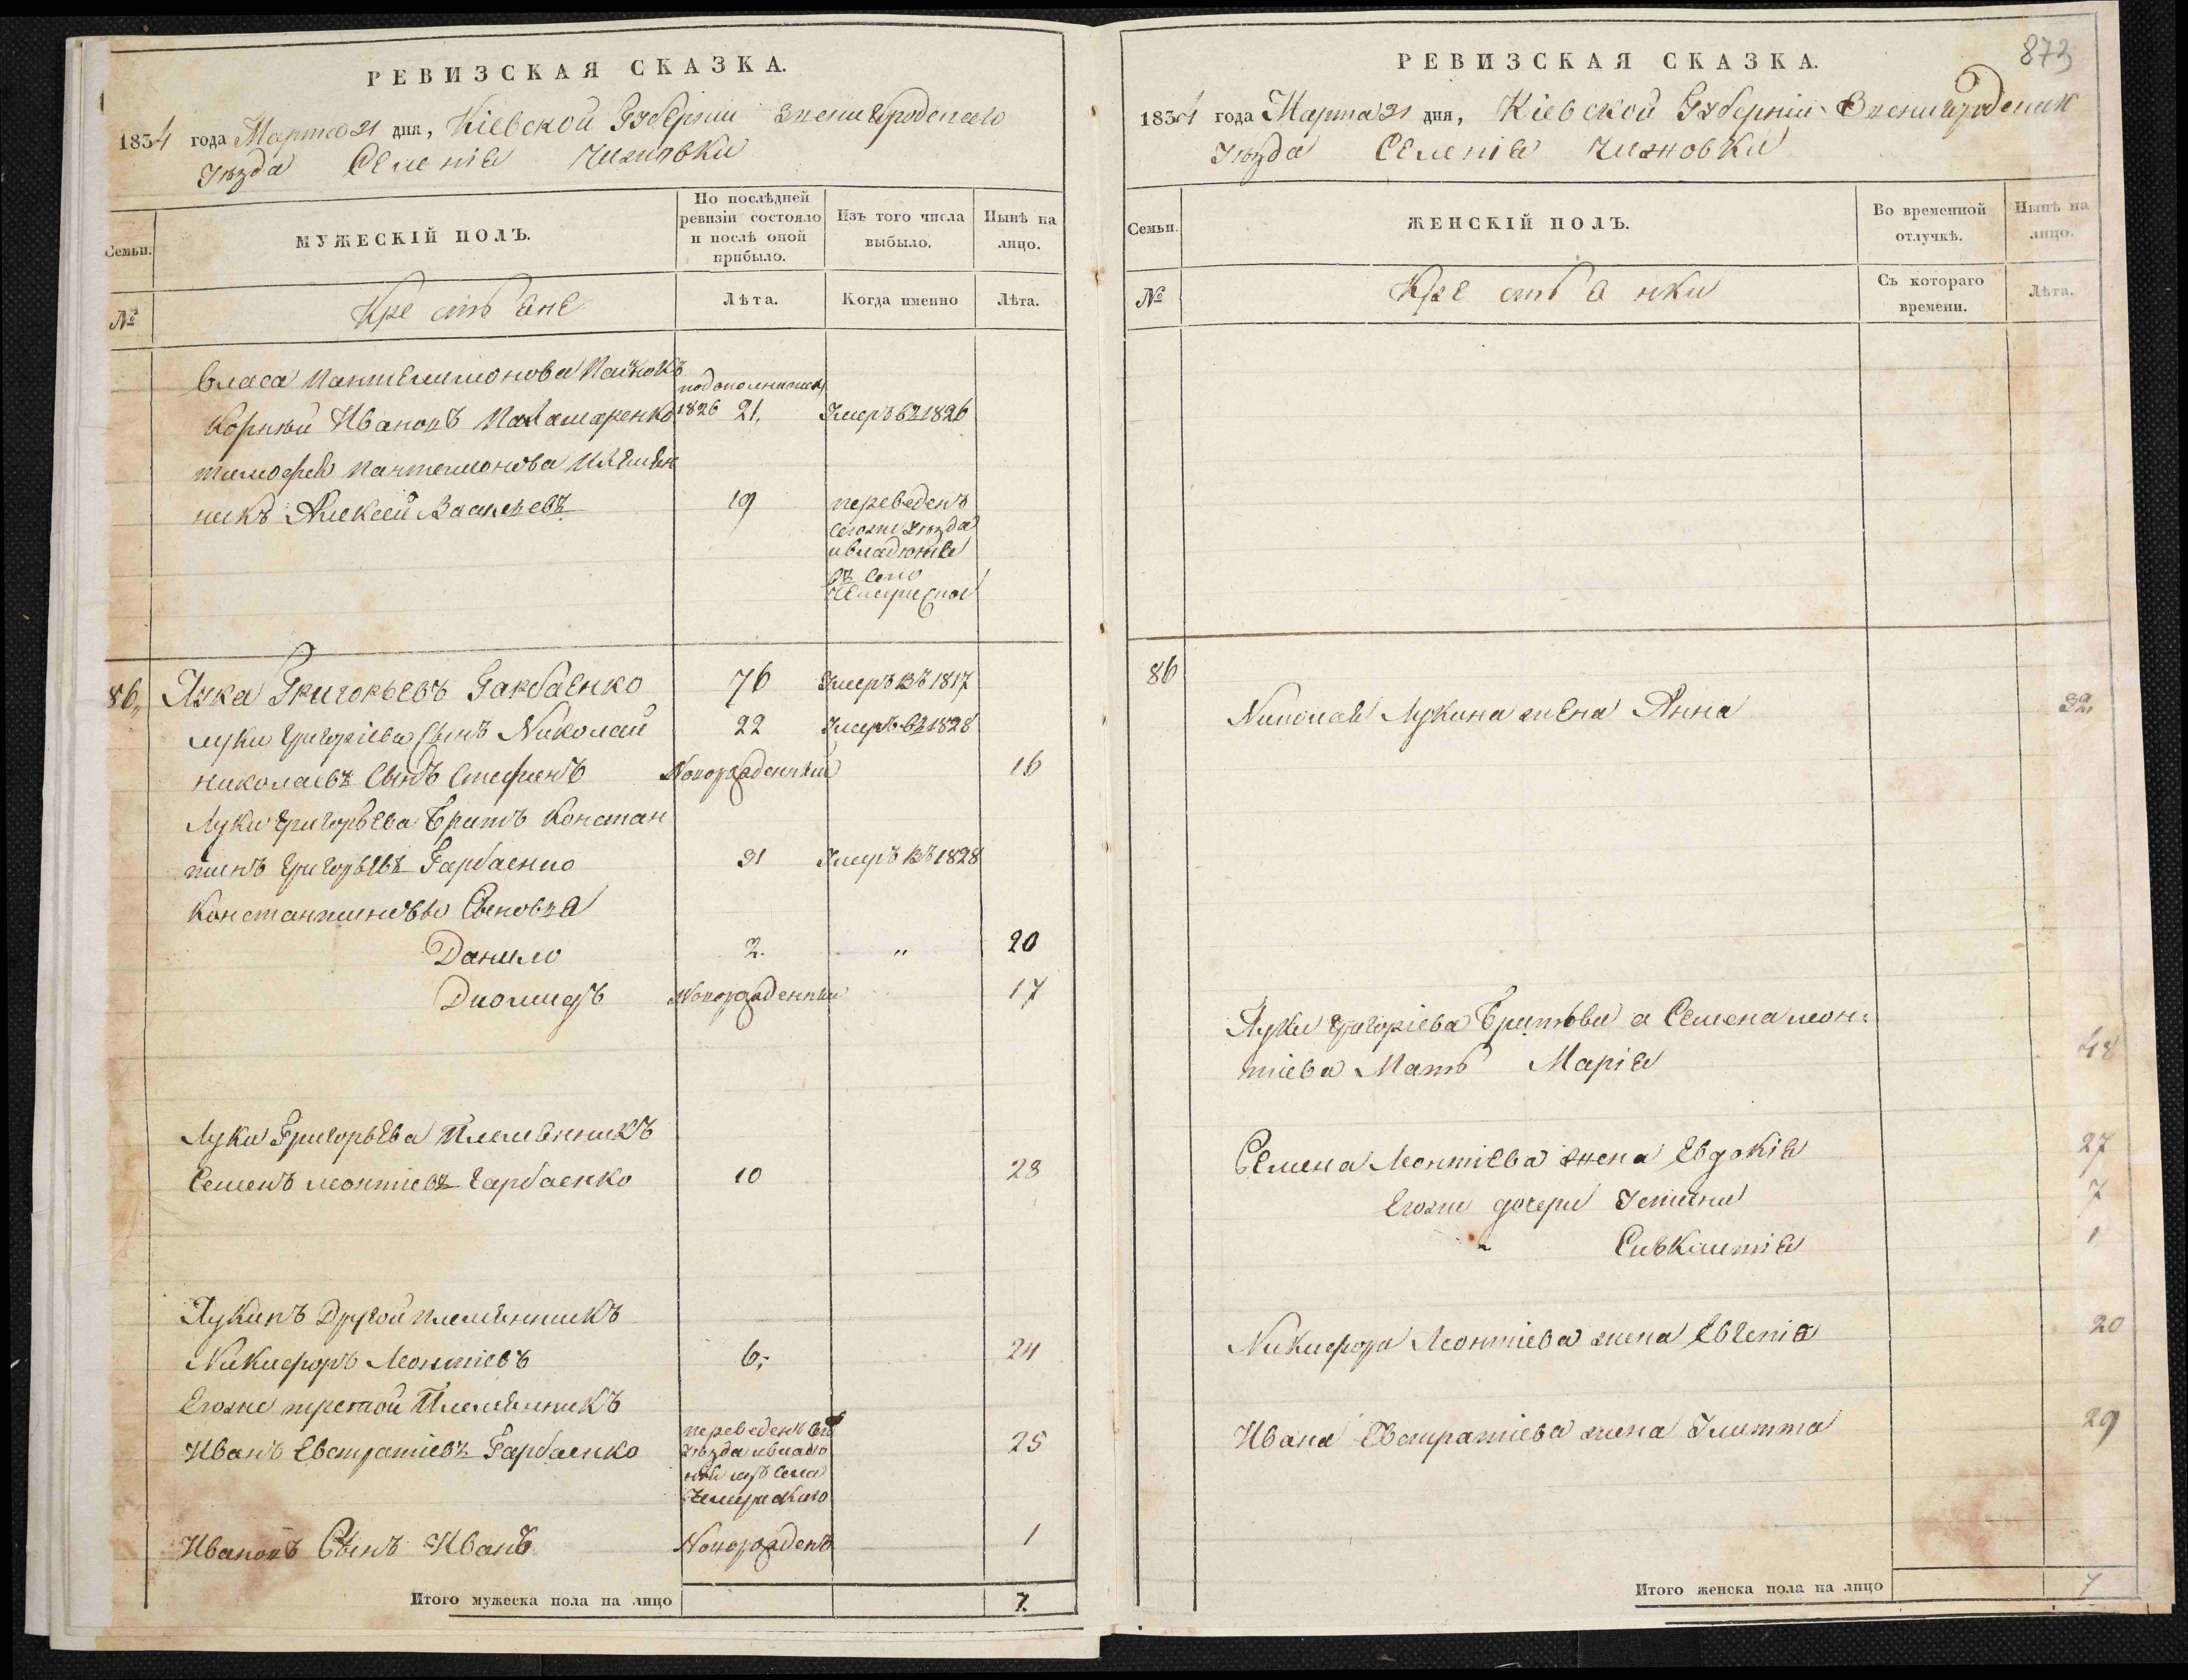 РЕВИЗСКАЯ СКАЗКА.
1834 года Марта 21 дня, Кіевской Губерніи Звенигородского
Уезда Селенія Чижовки
Семьи.
МУЖЕСКІЙ ПОЛЪ.
По послѣдней ревизіи состояло и послѣ оной прибыло.
Изъ того числа выбыло.
Нынѣ на лицо.
№
Крестьяне
Лѣта.
Когда именно
Лѣта.
Власа Пантелимонова
Корній Ивановъ Паламаренко 1826 21. Умеръ въ 1826
Тимофея Пантелимонова племян
никъ Алексей Васильевъ 19 переведенъ
уезда
въ село
86, Лука Григорьевъ Гарбаенко 76 Умеръ въ 1817
Луки Григоріева Сынъ Николай 22 Умеръ въ 1828
Николаевъ Сынъ Стефанъ Новорожденный 16
Луки Григорьева Братъ Констан
тинъ Григорьевъ Гарбаенко 31 Умеръ въ 1828
Константиновы Сыновья
Данило 2. " 20
Диомидъ Новорожденный 17
Луки Григорьева Племянникъ
Семенъ Леонтіевъ Гарбаенко 10 28
Лукинъ Другой племянникъ
Никифоръ Леонтіевъ 6, 24
Егоже третой Племянникъ
Иванъ Евстратіевъ Гарбаенко переведенъ 25
уезда
изъ села
Ивановъ Сынъ Иванъ Новорожденъ 1
Итого мужеска пола на лицо 7.
873
РЕВИЗСКАЯ СКАЗКА.
1834 года Марта 21 дня, Кіевской Губерніи Звенигородск
Уезда Селенія Чижовки
Семьи.
ЖЕНСКІЙ ПОЛЪ.
Во временной отлучкѣ.
Нынѣ на лицо.
№
Крестьянки
Съ котораго времени.
Лѣта.
86
Николая Лукина жена Анна 32
Луки Григоріева Братови а Семена Леон-
тіева Мать Марія 48
Семена Леонтіева жена Евдокія 27
Егоже дочери Устина 7
" 1
Никифора Леонтіева жена Евгенія 20
Ивана Евстратіева жена Улитта 29
Итого женска пола на лицо 7